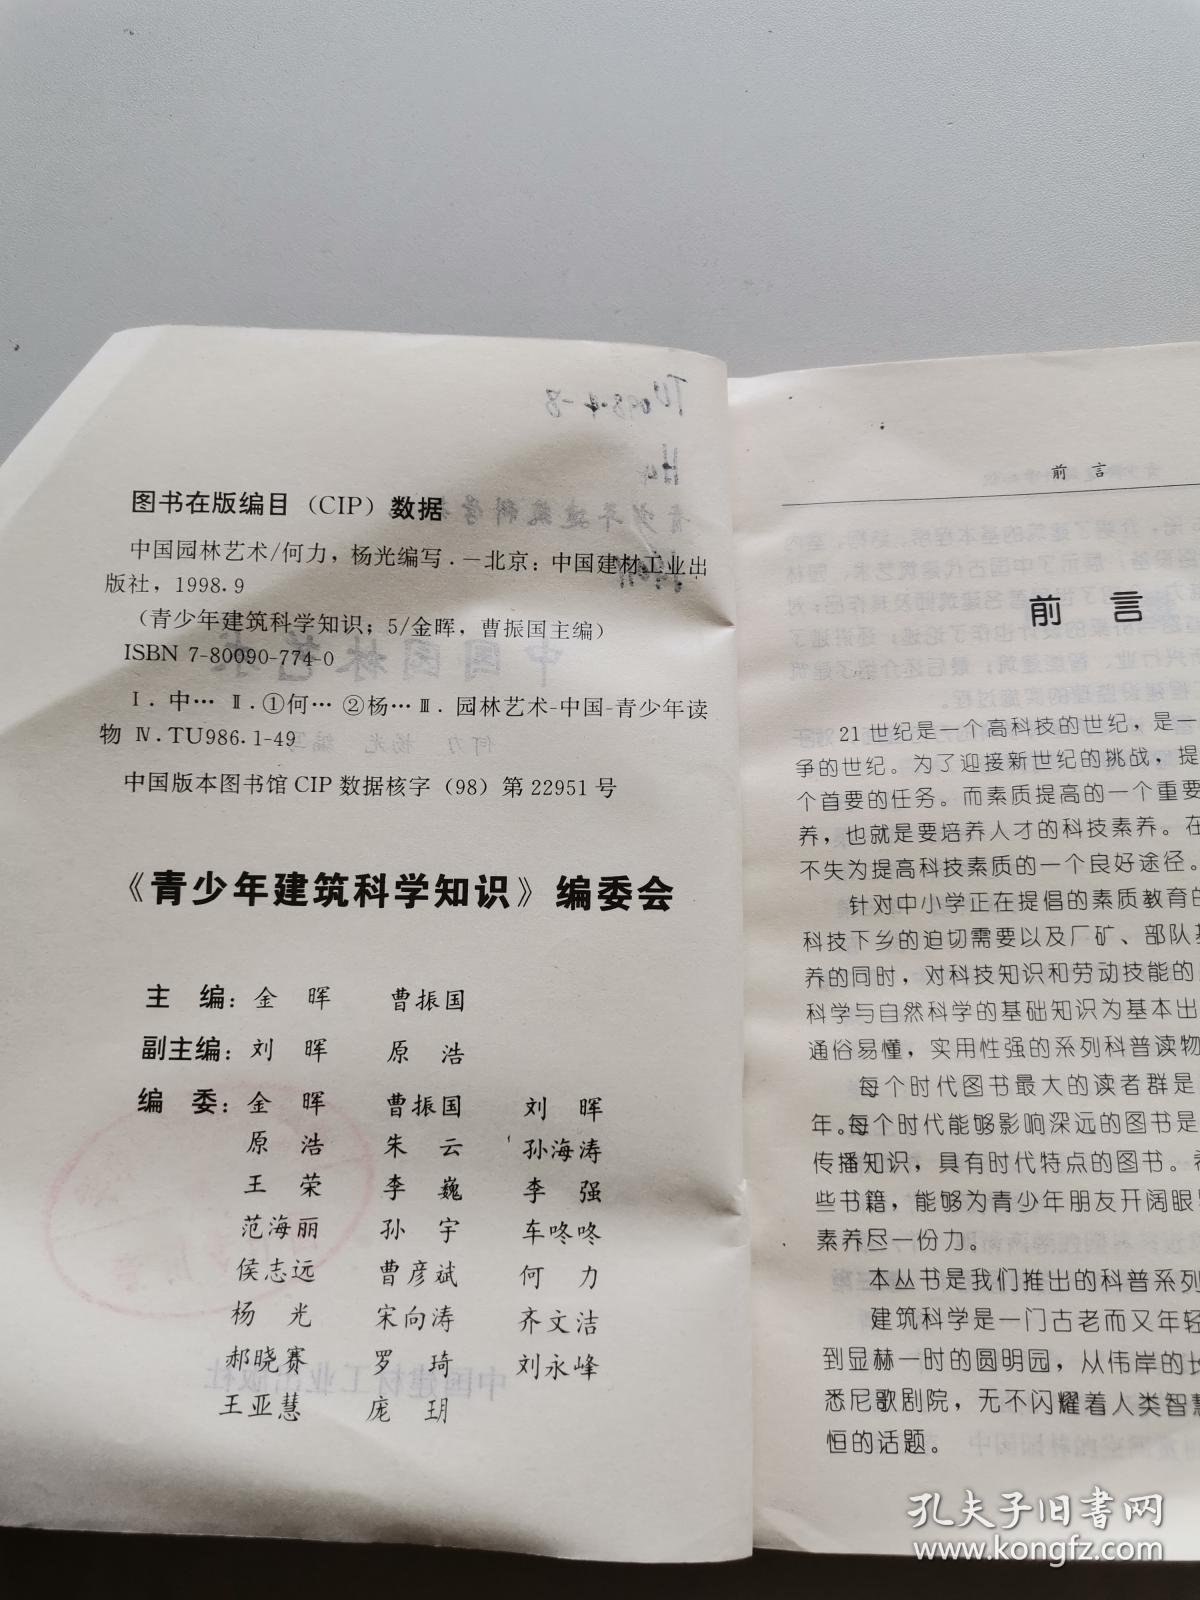 图书在版编目（CIP）数据
中国园林艺术/何力，杨光编写．－北京：中国建材工业出
版社，1998.9
（青少年建筑科学知识；5/金晖，曹振国主编）
ISBN 7-80090-774-0
Ⅰ．中… Ⅱ．①何… ②杨… Ⅲ．园林艺术-中国-青少年读
物 Ⅳ．TU986.1-49
中国版本图书馆CIP数据核字（98）第22951号
《青少年建筑科学知识》编委会
主 编：金 晖 曹振国
副主编：刘 晖 原 浩
编 委：金 晖 曹振国 刘 晖
原 浩 朱 云 孙海涛
王 荣 李 巍 李 强
范海丽 孙 宇 车咚咚
侯志远 曹彦斌 何 力
杨 光 宋向涛 齐文洁
郝晓赛 罗 琦 刘永峰
王亚慧 庞 玥
前 言
前 言
21世纪是一个高科技的世纪，是一
争的世纪。为了迎接新世纪的挑战，提
个首要的任务。而素质提高的一个重要
养，也就是要培养人才的科技素养。在
不失为提高科技素质的一个良好途径。
针对中小学正在提倡的素质教育的
科技下乡的迫切需要以及厂矿、部队基
养的同时，对科技知识和劳动技能的
科学与自然科学的基础知识为基本出
通俗易懂，实用性强的系列科普读物
每个时代图书最大的读者群是
年。每个时代能够影响深远的图书是
传播知识，具有时代特点的图书。希
些书籍，能够为青少年朋友开阔眼界
素养尽一份力。
本丛书是我们推出的科普系列
建筑科学是一门古老而又年轻
到显赫一时的圆明园，从伟岸的长
悉尼歌剧院，无不闪耀着人类智慧
恒的话题。
孔夫子旧书网
www.kongfz.com